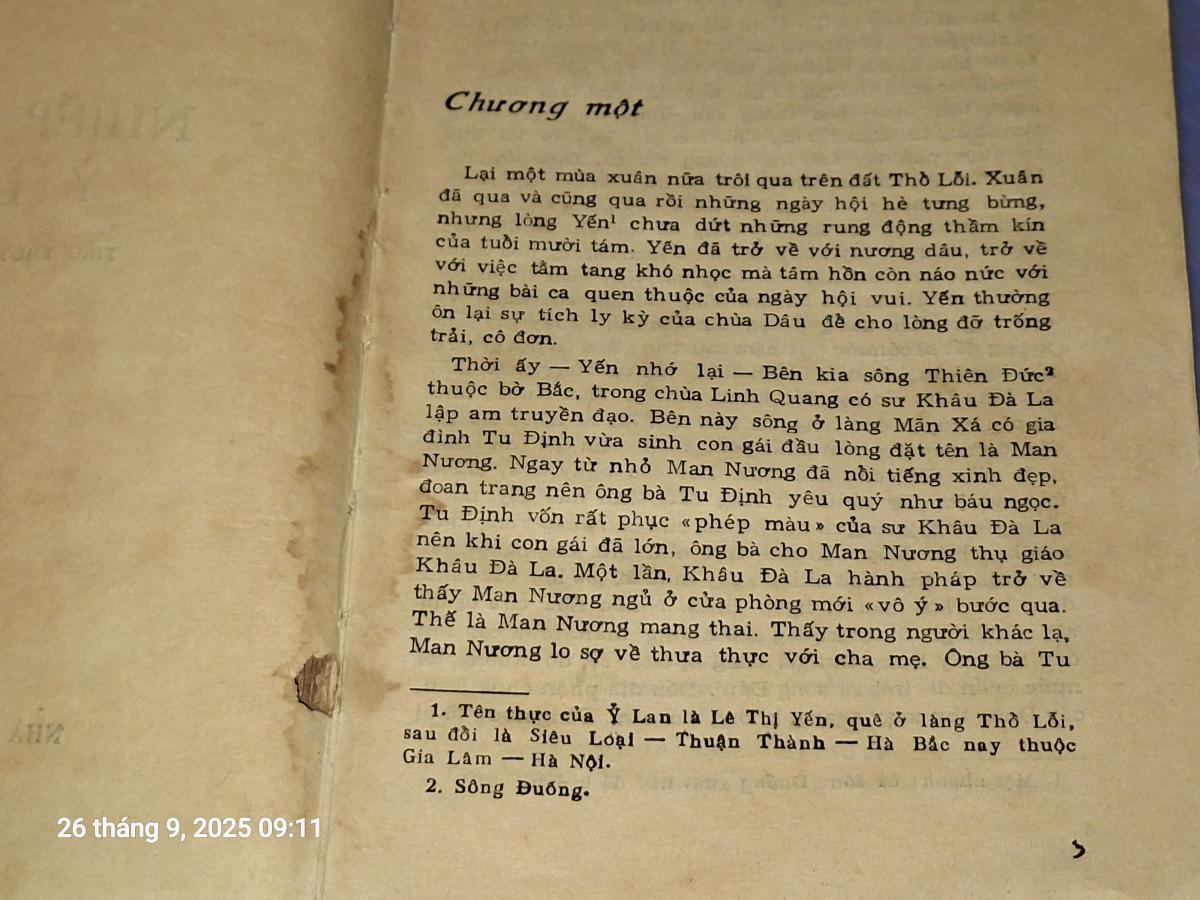 Chương một
Lại một mùa xuân nữa trôi qua trên đất Thổ Lỗi. Xuân
đã qua và cũng qua rồi những ngày hội hè tưng bừng,
nhưng lòng Yến¹ chưa dứt những rung động thầm kín
của tuổi mười tám. Yến đã trở về với nương dâu, trở về
với việc tằm tang khó nhọc mà tâm hồn còn náo nức với
những bài ca quen thuộc của ngày hội vui. Yến thường
ôn lại sự tích ly kỳ của chùa Dâu để cho lòng đỡ trống
trải, cô đơn.
Thời ấy — Yến nhớ lại — Bên kia sông Thiên Đức²
thuộc bờ Bắc, trong chùa Linh Quang có sư Khâu Đà La
lập am truyền đạo. Bên này sông ở làng Mãn Xá có gia
đình Tu Định vừa sinh con gái đầu lòng đặt tên là Man
Nương. Ngay từ nhỏ Man Nương đã nổi tiếng xinh đẹp,
đoan trang nên ông bà Tu Định yêu quý như báu ngọc.
Tu Định vốn rất phục «phép màu» của sư Khâu Đà La
nên khi con gái đã lớn, ông bà cho Man Nương thụ giáo
Khâu Đà La. Một lần, Khâu Đà La hành pháp trở về
thấy Man Nương ngủ ở cửa phòng mới «vô ý» bước qua.
Thế là Man Nương mang thai. Thấy trong người khác lạ,
Man Nương lo sợ về thưa thực với cha mẹ. Ông bà Tu
1. Tên thực của Ỷ Lan là Lê Thị Yến, quê ở làng Thổ Lỗi,
sau đổi là Siêu Loại — Thuận Thành — Hà Bắc nay thuộc
Gia Lâm — Hà Nội.
2. Sông Đuống.
26 tháng 9, 2025 09:11